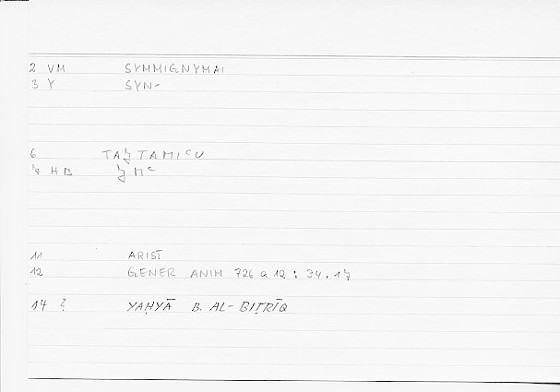 2 VM SYMMIGNYMAI
3 Y SYN-
6 TA7TAMIᶜU
7 HB 7Mᶜ
11 ARIST
12 GENER ANIM 726 a 12 : 34.17
14 ? YAḤYĀ B. AL-BIṬRĪQ